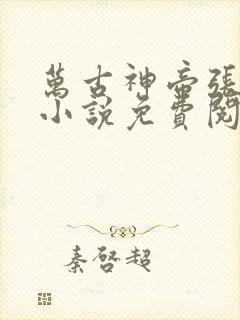 萬古神帝張
小說免費閱
秦啓超